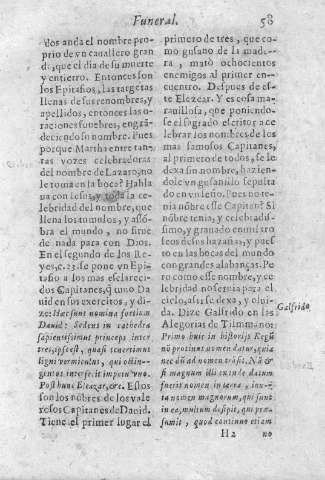 Funeral. 58
dos anda el nombre pro-
prio de vn cauallero gran
de, que el dia de su muerte
y entierro. Entonces son
los Epitafios, las targetas
llenas de sus renombres, y
apellidos, entonces las o-
raciones funebres, engrã-
deciendo su nombre. Pues
porque Martha entre tan-
tas vozes celebradoras
del nombre de Lazaro, no
le toma en la boca? Habla
ua con Iesus, y toda la ce-
lebridad del nombre, que
llena los tumulos, y assõ-
bra el mundo, no sirue
de nada para con Dios.
En el segundo de los Re-
yes, c. 23. se pone vn Epi-
tafio a los mas esclareci-
dos Capitanes, q̃ tuuo Da
uid en sus exercitos, y di-
ze: Hæc sunt nomina fortium
Dauid: Sedens in cathedra
sapientissimus princeps inter
tres, ipse est, quasi tenerrimus
ligni vermiculus, qui octin-
gentos interfecit impetu vno.
Post hunc Eleazar, &c. Estos
son los nõbres de los vale
rosos Capitanes de Dauid.
Tiene el primer lugar el
primero de tres, que co-
mo gusano de la made-
ra, matò ochocientos
enemigos al primer en-
cuentro. Despues de es-
te Elezear. Y es cosa ma-
rauillosa, que poniendo-
se el sagrado escritor a ce
lebrar los nombres de los
mas famosos Capitanes,
al primero de todos, se le
dexa sin nombre, hazien-
dole vn gusanillo sepulta
do en vn leño. Pues no te-
nia nõbre esse Capitan? Si
nõbre tenia, y celebradis-
simo, y granado en mil tro
feos de sus hazañas, y pues-
to en las bocas del mundo
con grandes alabanças. Pe
ro como esse nombre, y ce
lebridad no seruia para el
cielo, assi se dexa, y olui-
da. Dize Galfrido en las
Alegorias de Tilmanno:
Galfrido.
Primo huic in historijs Regũ
nõ proprium nomen datur, quia
nec
si magnum illi eundem datum
fuerit nomen in terra, iux-
ta nomen magnorum, qui sunt
in ea, multum desipit, qui præ-
sumit, quod continuo etiam
H 2 no